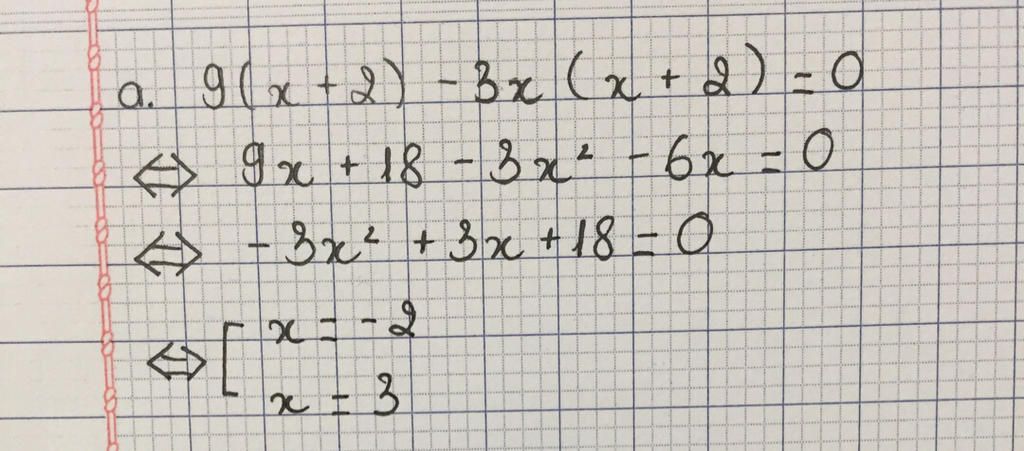 a. 9(x + 2) - 3x (x + 2) = 0
⇔ 9x + 18 - 3x² - 6x = 0
⇔ - 3x² + 3x + 18 = 0
⇔ [ x = -2
x = 3